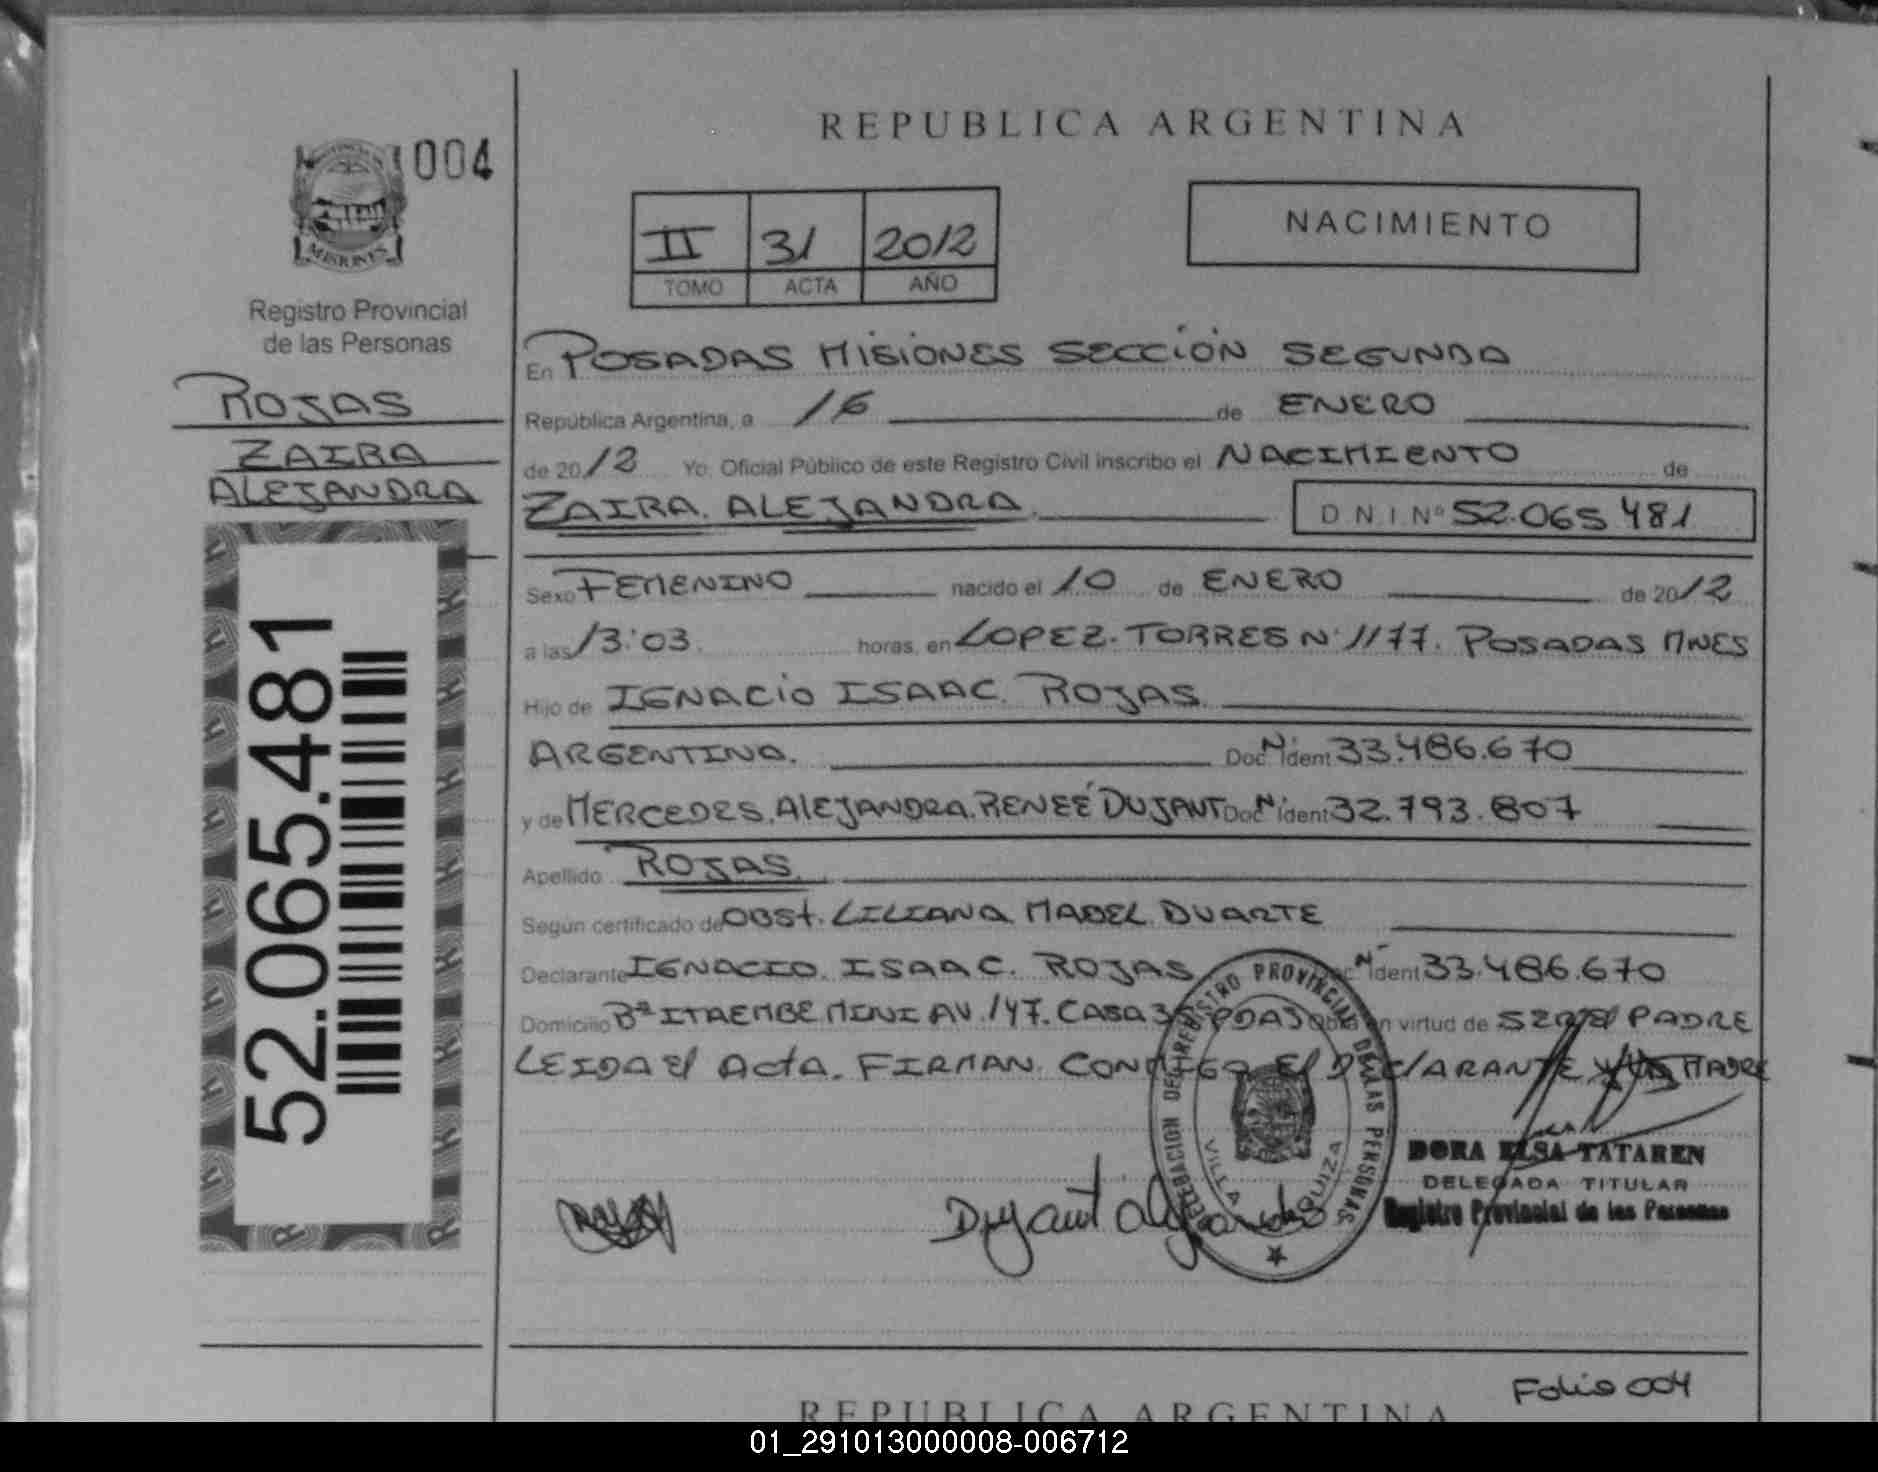 REPUBLICA ARGENTINA
004
MISIONES
Registro Provincial
de las Personas
ROJAS
ZAIRA
ALEJANDRA
52.065.481
II 31 2012
TOMO ACTA AÑO
NACIMIENTO
En POSADAS MISIONES SECCIÓN SEGUNDA
República Argentina, a 16 de ENERO
de 2012 Yo, Oficial Público de este Registro Civil inscribo el NACIMIENTO de
ZAIRA. ALEJANDRA. D N I Nº 52.065 481
Sexo FEMENINO nacido el 10 de ENERO de 2012
a las 13:03. horas, en LOPEZ. TORRES Nº 1177. POSADAS MNES
Hijo de IGNACIO ISAAC. ROJAS.
ARGENTINO. Doc N ident 33.486.670
y de MERCEDES. ALEJANDRA. RENEÉ DUJAUT Doc N ident 32.793.807
Apellido ROJAS.
Según certificado de OBST. LILIANA MABEL DUARTE
Declarante IGNACIO. ISAAC. ROJAS N ident 33.486.670
Domicilio Bº ITAEMBE MINI AV. 147. CASA 35 PDAS Obra en virtud de SER el PADRE
LEIDA el ActA. FIRMAN. CONMIGO El DEClARANTE MADRE
REGISTRO PROVINCIAL DE LAS PERSONAS
DELEGACION
VILLA
Dujaut Alejandra
DORA ELSA TATAREN
DELEGADA TITULAR
Registro Provincial de las Personas
Folio 004
REPUBLICA ARGENTINA
01_291013000008-006712